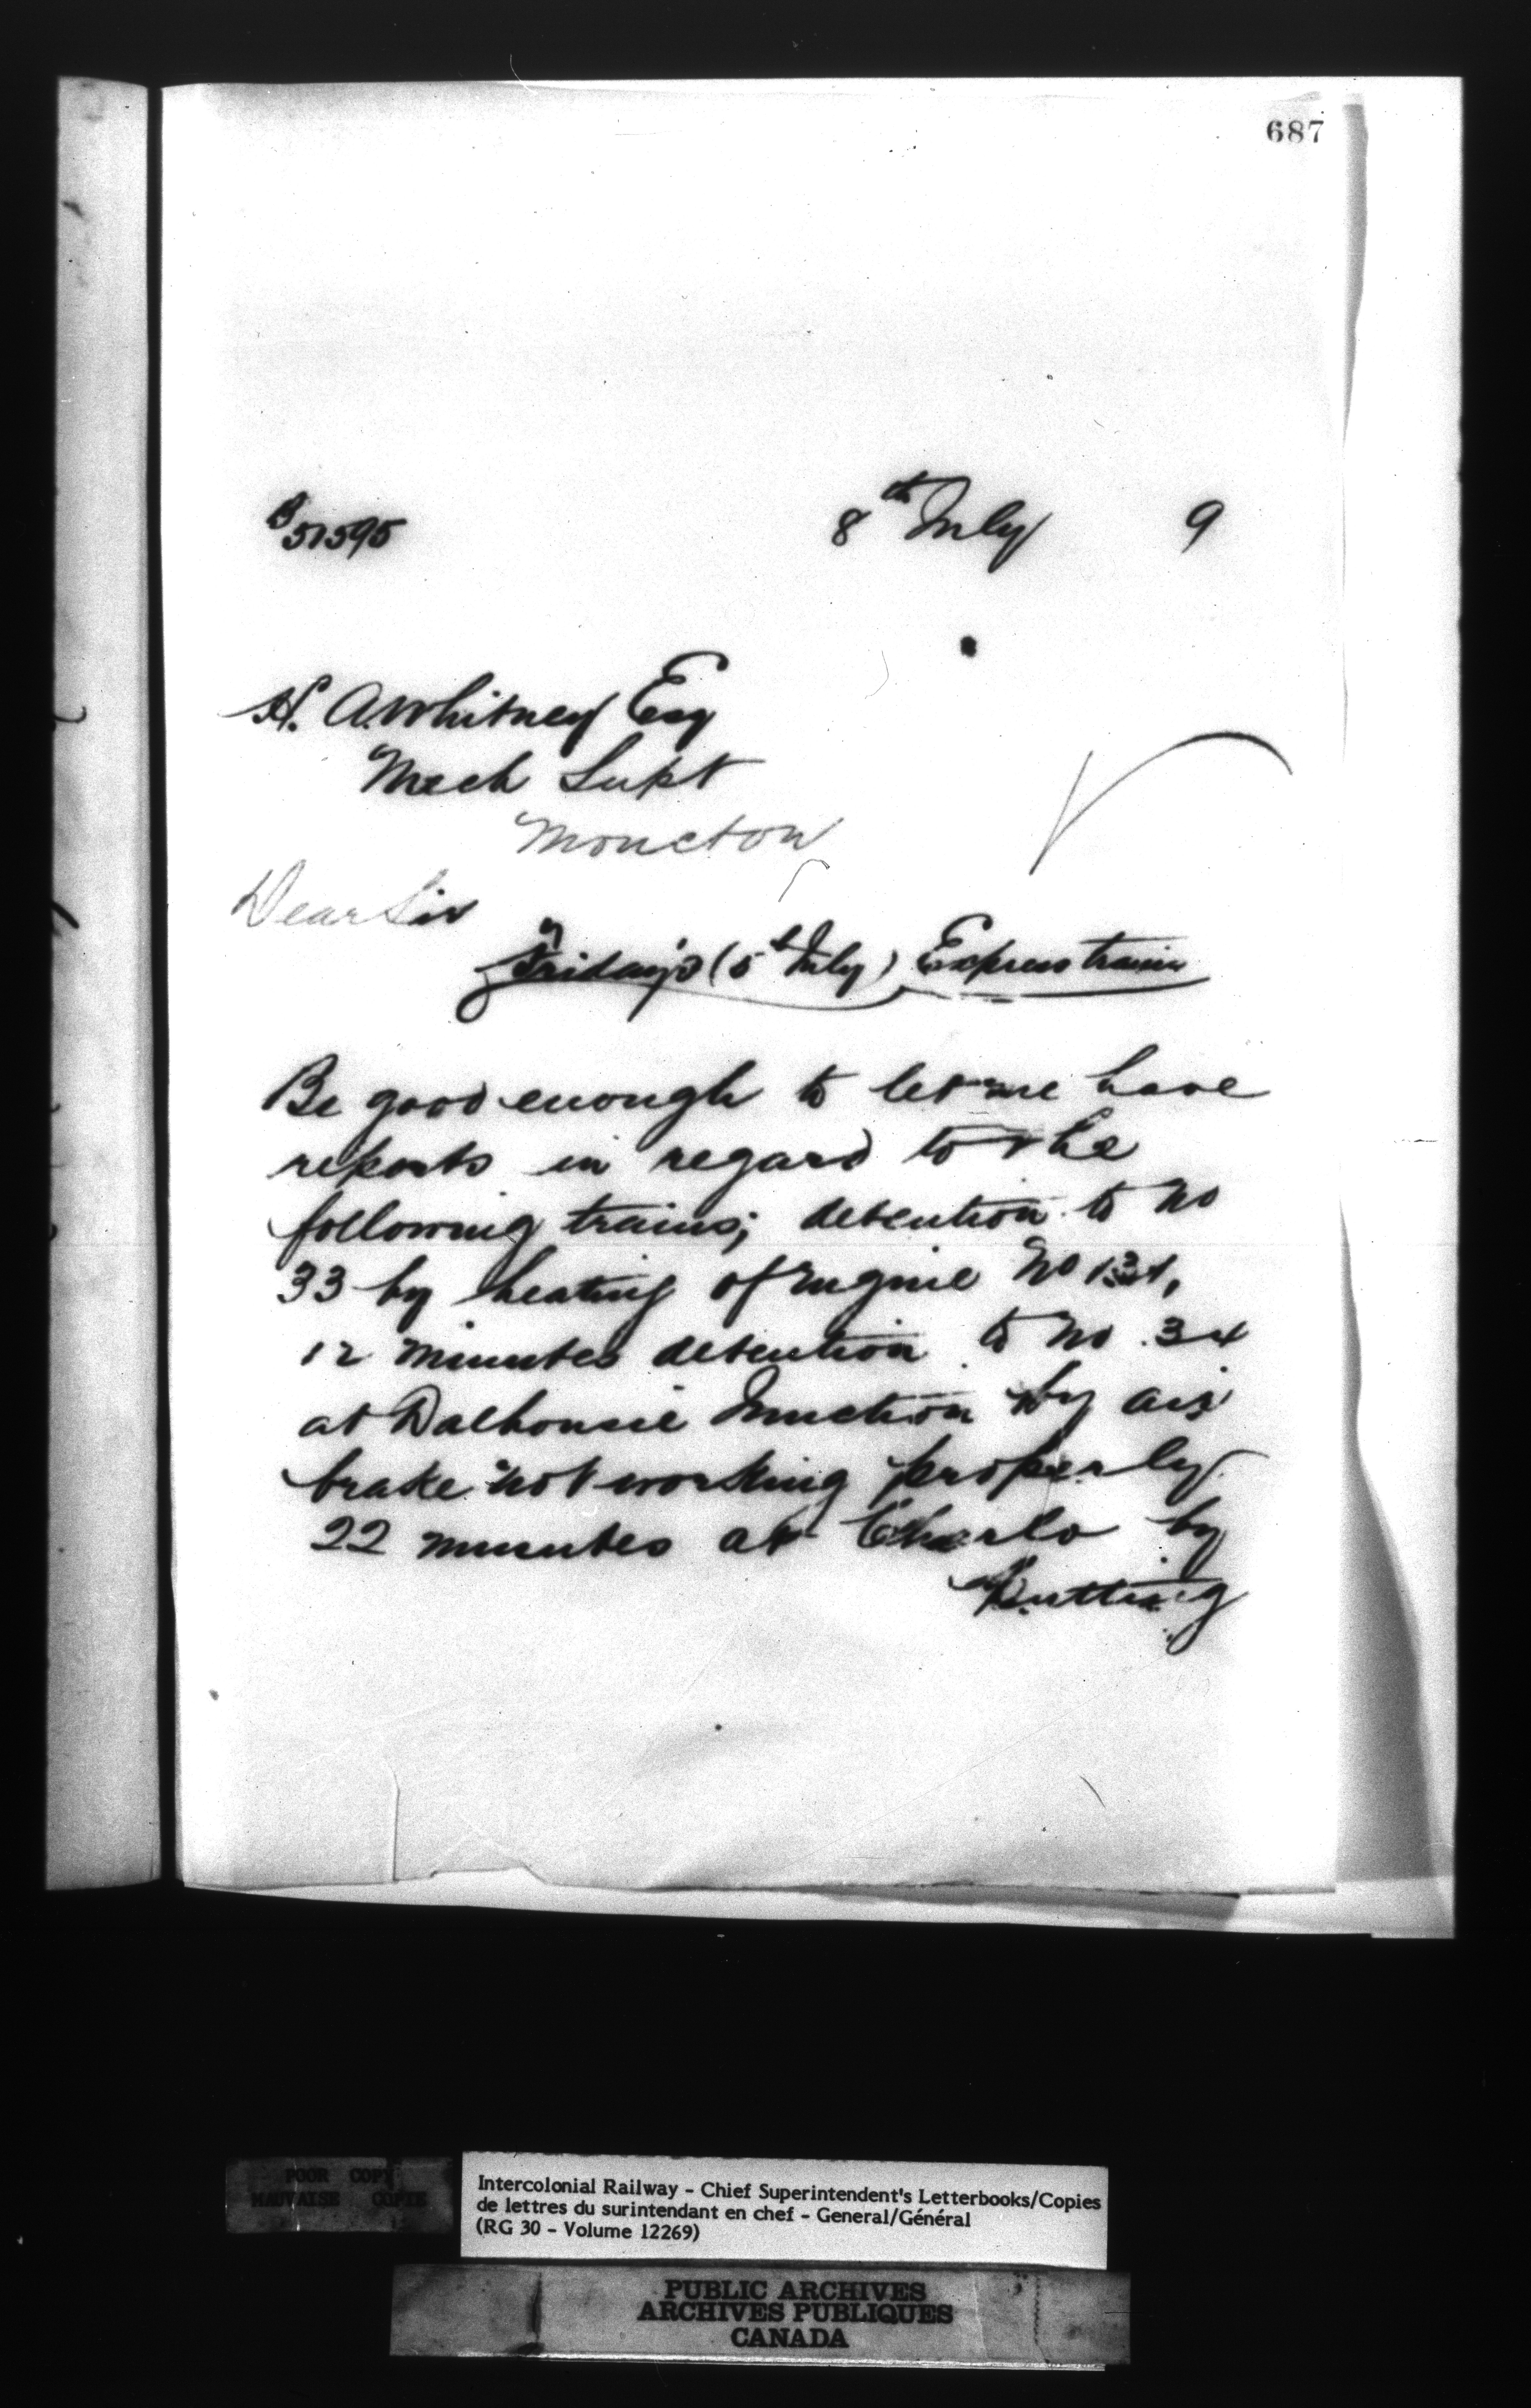 687
B 51595
8th July 9
H. A. Whitney Esq
Mech Supt
Moncton
Dear Sir
Friday's (5th July) Express trains
Be good enough to let me have
reports in regard to the
following trains; detention to No
33 by heating of Engine No
12 minutes detention to No. 34
at Dalhousie Junction by air
brake not working properly
22 minutes at Charlo by
Putting
POOR COPY
MAUVAISE COPIE
Intercolonial Railway - Chief Superintendent's Letterbooks/Copies
de lettres du surintendant en chef - General/Général
(RG 30 - Volume 12269)
PUBLIC ARCHIVES
ARCHIVES PUBLIQUES
CANADA